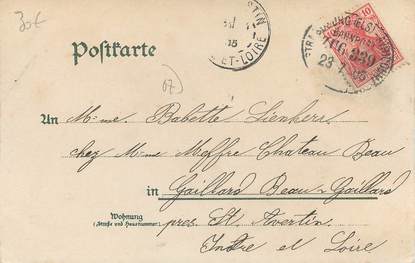 30€
TIN
15
ET-LOIRE
10
BAHNPOST
ZUG 339
23
Postkarte
07
An Mme. Babette Lienhere
chez Mme Moffre Chateau Beau
in Gaillard Beau-Gaillard
Wohnung
(Straße und Hausnummer)
pres. St. Avertin
Indre et Loire